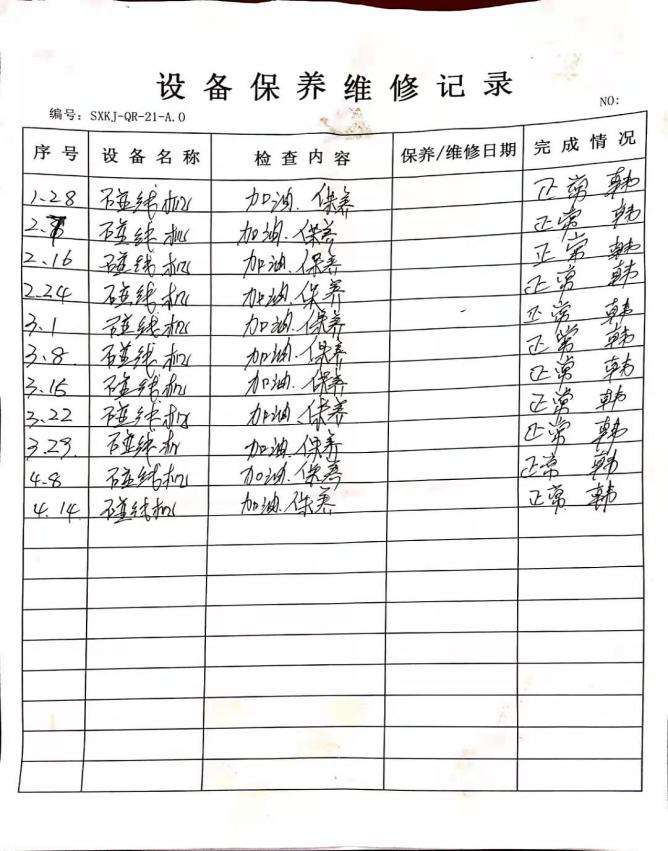 设备保养维修记录
编号：SXKJ-QR-21-A.0 NO:
序号 设备名称 检查内容 保养/维修日期 完成情况
1.28 碰线机 加油.保养 正常 韩
2. 碰线机 加油.保养 正常 韩
2.16 碰线机 加油.保养 正常 韩
2.24 碰线机 加油.保养 正常 韩
3.1 碰线机 加油.保养 正常 韩
3.8 碰线机 加油.保养 正常 韩
3.15 碰线机 加油.保养 正常 韩
3.22 碰线机 加油.保养 正常 韩
3.29 碰线机 加油.保养 正常 韩
4.8 碰线机 加油.保养 正常 韩
4.14 碰线机 加油.保养 正常 韩